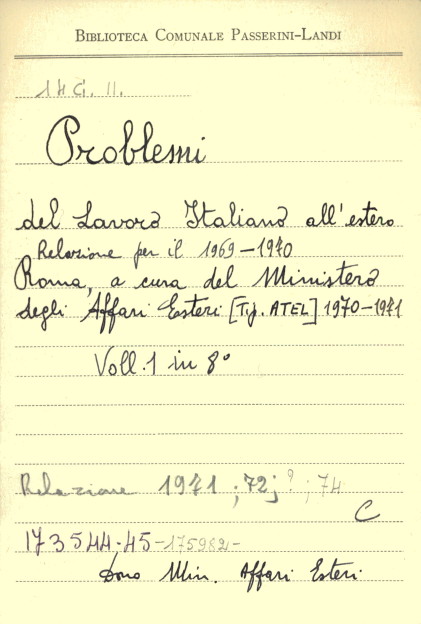 BIBLIOTECA COMUNALE PASSERINI-LANDI
14 G. II.
Problemi
del Lavoro Italiano all'estero
Relazione per il 1969-1970
Roma, a cura del Ministero
degli Affari Esteri [Tip. ATEL] 1970-1971
Voll. 1 in 8°
Relazione 1971 ; 72; ? ; 74
C
173544-45-175982-
Dono Min. Affari Esteri